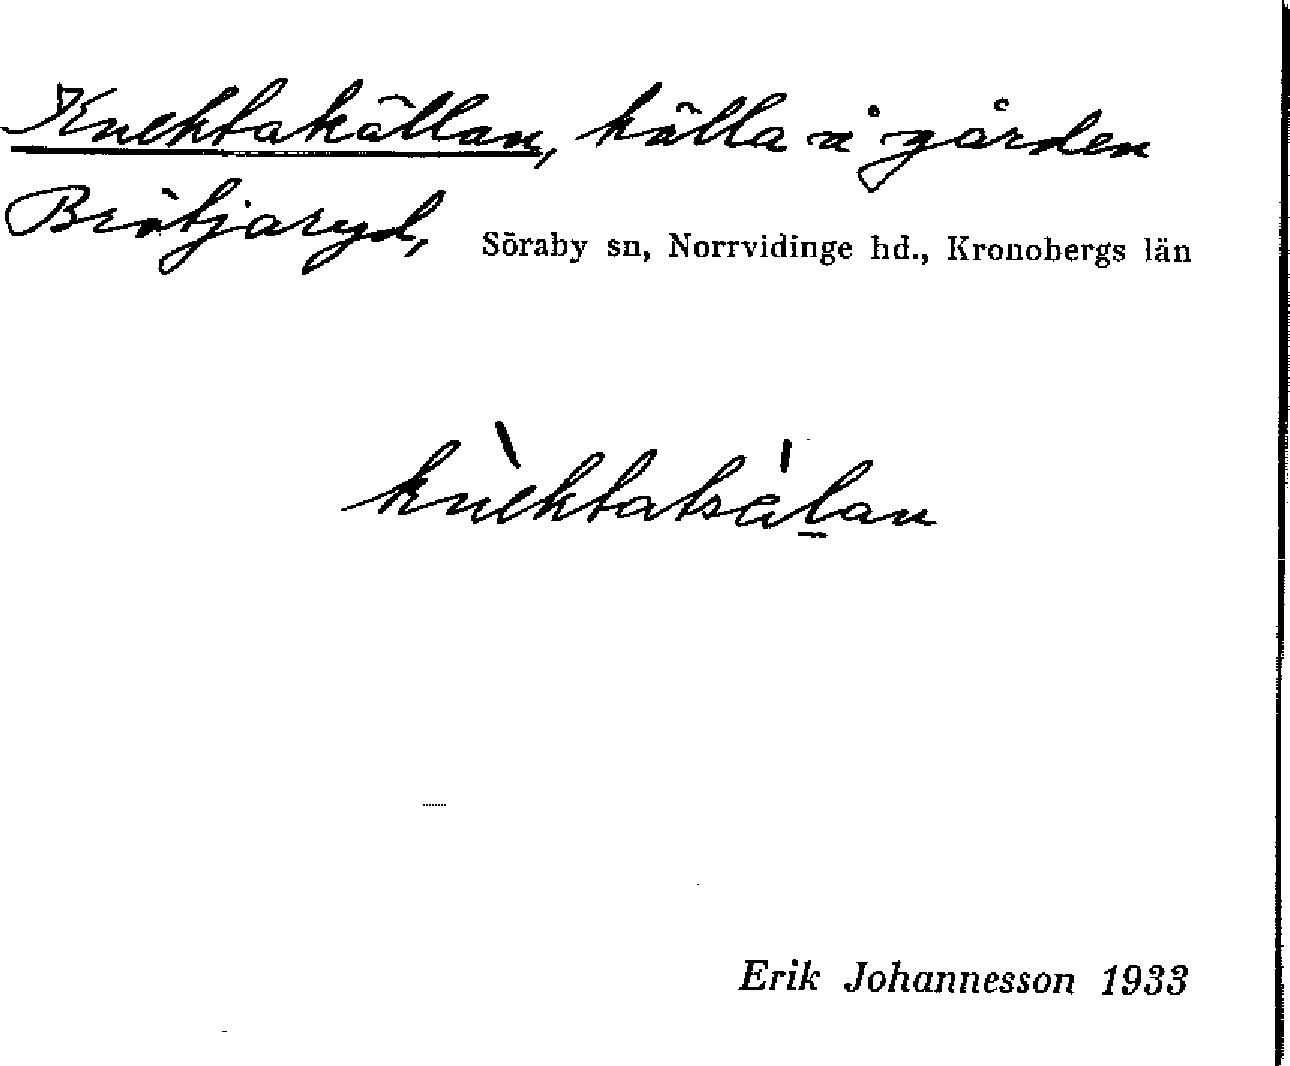 Knektakällan, källa å gården
Brötjaryd, Söraby sn, Norrvidinge hd., Kronobergs län
knèktatsä́lan
Erik Johannesson 1933